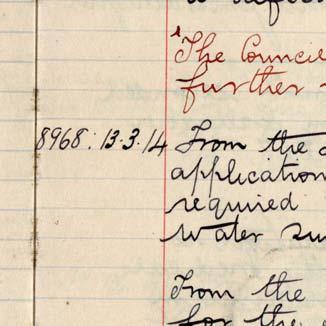 The Council
further
8968: 13.3.14 From the
application
required
Water su
From the
for the